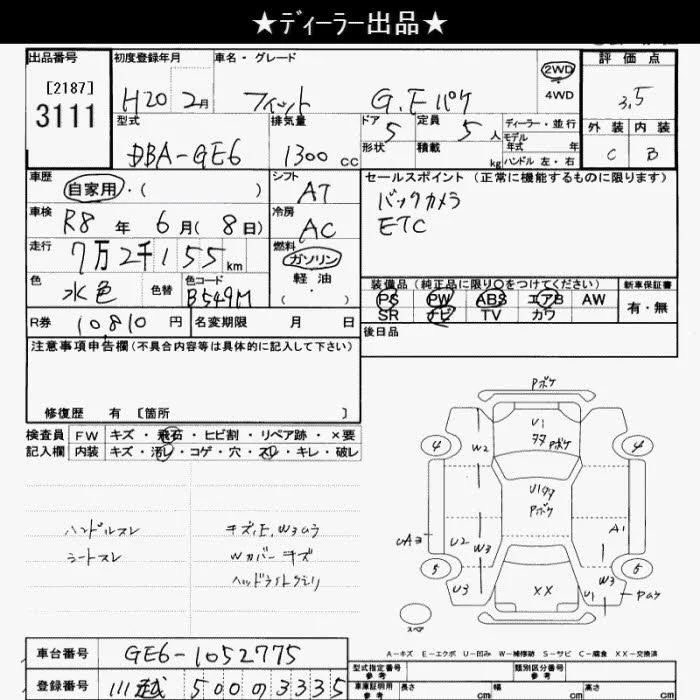 ★ディーラー出品★
出品番号
[2187]
3111
初度登録年月
H20 2月
車名・グレード
フィット G.Eパケ
2WD
4WD
評価点
3.5
外装 内装
C B
型式
DBA-GE6
排気量
1300 cc
ドア 5
定員 5 人
形状
積載 kg
ディーラー・並行
モデル年式 年
ハンドル 左・右
車歴
自家用・( )
シフト
AT
セールスポイント(正常に機能するものに限ります)
バックカメラ
ETC
車検
R8 年 6月(8日)
冷房
AC
走行
7万2千155 km
燃料
ガソリン
軽油
( ・ )
色
水色
色替
色コード
B549M
装備品(純正品に限り○をつけてください)
新車保証書
PS PW ABS エアB AW
SR ナビ TV カワ
有・無
R券 10,810 円
名変期限 月 日
後日品
注意事項申告欄(不具合内容等は具体的に記入して下さい)
修復歴 有 [箇所 ]
検査員記入欄
FW キズ・飛石・ヒビ割・リペア跡・×要
内装 キズ・汚レ・コゲ・穴・スレ・キレ・破レ
ハンドルスレ
シートスレ
キズ,E,W3ムラ
Wカバーキズ
ヘッドライトクモリ
Pボケ
U1
Pボケ
W2
4
4
Pボケ
A1
U2
W3
5
5
U3
XX
W3
U1
スペア
A-キズ E-エクボ U-凹み W-補修跡 S-サビ C-腐食 XX-交換済
車台番号
GE6-1052775
登録番号
500 の 3335
型式指定番号
参考
類別区分番号
参考
車庫証明用
参考
長さ cm
幅 cm
高さ cm